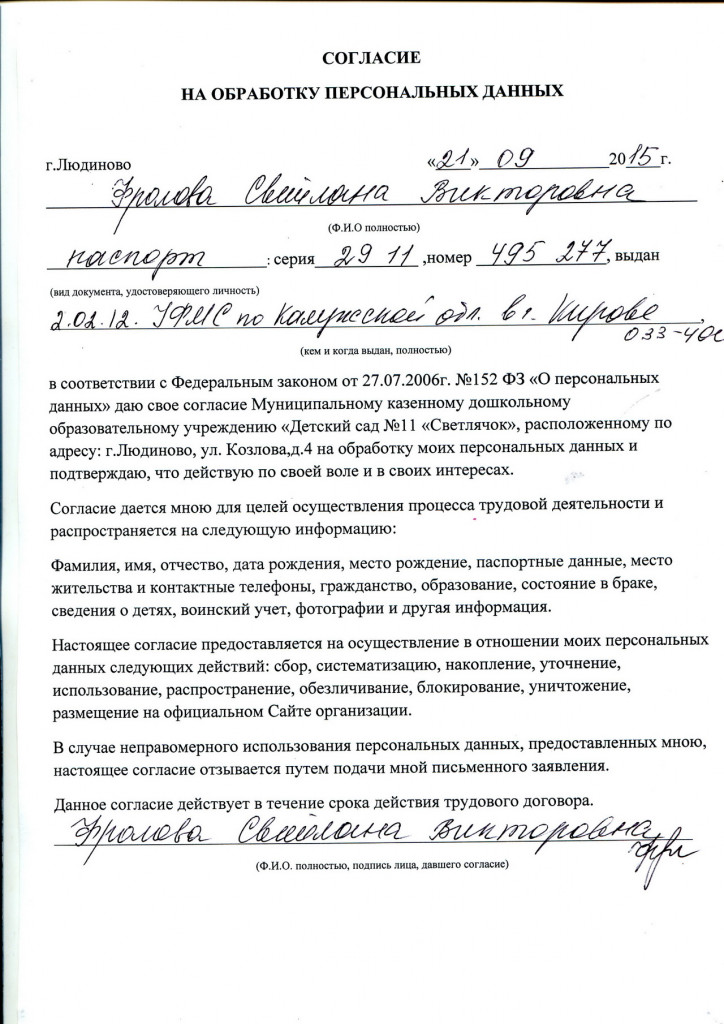 СОГЛАСИЕ
НА ОБРАБОТКУ ПЕРСОНАЛЬНЫХ ДАННЫХ
г.Людиново «21» 09 2015 г.
Фролова Светлана Викторовна
(Ф.И.О полностью)
паспорт : серия 29 11 ,номер 495 277, выдан
(вид документа, удостоверяющего личность)
2.02.12. УФМС по Калужской обл. в г. Кирове
033-40
(кем и когда выдан, полностью)
в соответствии с Федеральным законом от 27.07.2006г. №152 ФЗ «О персональных
данных» даю свое согласие Муниципальному казенному дошкольному
образовательному учреждению «Детский сад №11 «Светлячок», расположенному по
адресу: г.Людиново, ул. Козлова,д.4 на обработку моих персональных данных и
подтверждаю, что действую по своей воле и в своих интересах.
Согласие дается мною для целей осуществления процесса трудовой деятельности и
распространяется на следующую информацию:
Фамилия, имя, отчество, дата рождения, место рождение, паспортные данные, место
жительства и контактные телефоны, гражданство, образование, состояние в браке,
сведения о детях, воинский учет, фотографии и другая информация.
Настоящее согласие предоставляется на осуществление в отношении моих персональных
данных следующих действий: сбор, систематизацию, накопление, уточнение,
использование, распространение, обезличивание, блокирование, уничтожение,
размещение на официальном Сайте организации.
В случае неправомерного использования персональных данных, предоставленных мною,
настоящее согласие отзывается путем подачи мной письменного заявления.
Данное согласие действует в течение срока действия трудового договора.
Фролова Светлана Викторовна
(Ф.И.О. полностью, подпись лица, давшего согласие)